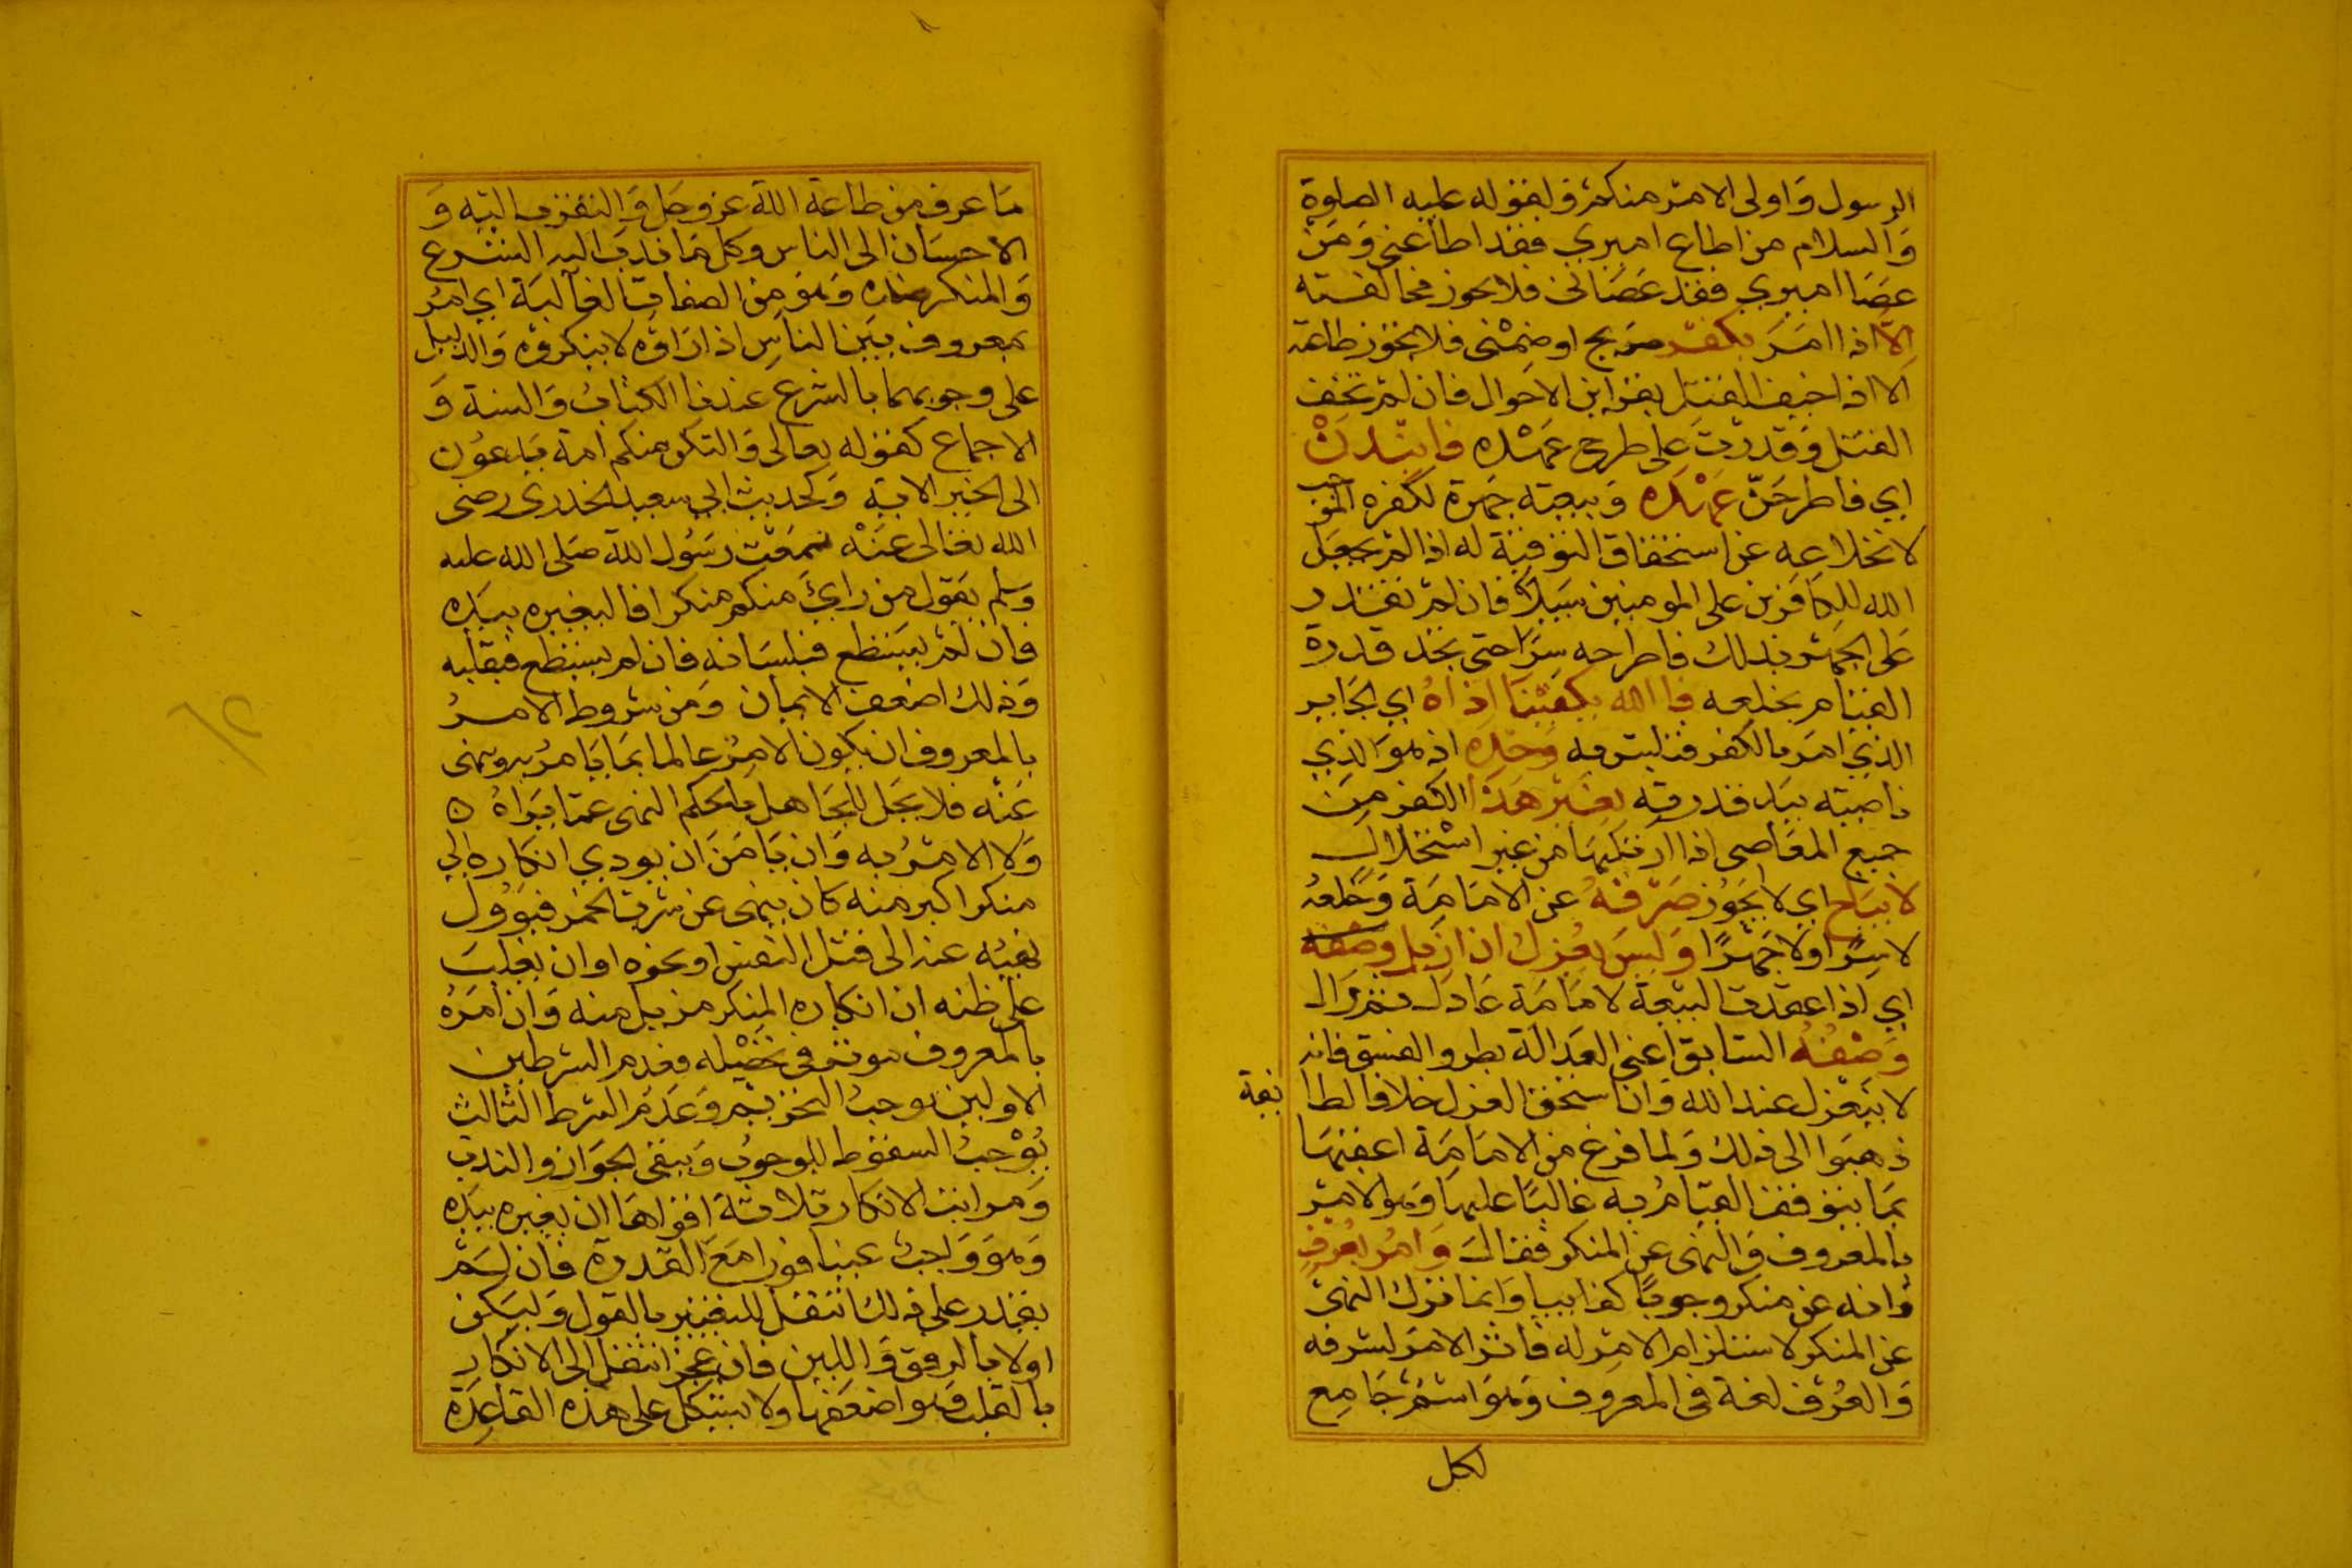 الرسول وَاولى الامر منكم وَلقوله عليه الصلوة
وَالسلام من اطاع اميري فقد اطاعنى وَمَن
عصَا اميري فقد عَصَانى فلا يجوز مخالفته
اِلاَّ اذا امَرَ بكفر صَريح او ضمْنى فلا يجَوز طاعته
الا اذا خيف القتل بقراين الاحوال فان لم تخف
القتل وَقدرت على طرح عَهْده فانبذنْ
اي فاطرحَنّ عَهْدَه وَبيعته جهرة لكفره الموجب
لانخلاعه عن استحقاق التوفية له اذا لم يجعَل
الله للكافرين على المومنين سَبيلاً فان لم تقدر
عَلى الجهر بذلك فاطرحه سِرّا حتى تجد قدرة
القيَام بخلعه فا الله يكفيْنَا اذاهُ اي الجَاير
الذي امَر بالكفر فتلبس به وَحْدَه اذ هوَ الذي
ناصيته بيَد قدرته بغيْر هَذَا الكفر مِنَ
جميع المعَاصى اذا ارتكبهَا من غير استْحلال
لا يبَاح اي لا يَجَوُز صَرْفهُ عن الامَامَة وَخَلعهُ
لا سِرًا ولا جَهرًا وَليسَ يعْزل ان ازيل وصْفه
اي اذا عقدت البيْعة لامَامَة عَادل ثم زال
وَصْفُهُ السَابق اعنى العَدالة بطرو الفسق فانه
لا ينعزل عند الله وَان استحق العزل خلافا لطا يفة
ذهبوا الى ذلك وَلما فرغ من الامَامَة اعقبهَا
بمَا يتوقف القيامُ به غالبًا عليهَا وَهو الامر
بالمعروف وَالنهى عن المنكر فقالَ وَامُر بعُرفٍ
وانه عن منكر وجوبًا كفاييا وَانما ترك النهى
عن المنكر لاستلزام الامر له فاثر الامر لشرفه
وَالعُرف لغة فى المعرُوف وَهوَ اسم جَامِع
لكل
مَا عرف من طاعة الله عز وجل وَالتقرب اليه وَ
الاحسَان الى الناس وكل مَا ندبَ اليه الشرع
وَالمنكر ضده وَهوَ من الصفات الغآلبَة اي امرُ
معروف بيَن الناسِ اذا رَاوه لا ينكروْه وَالدليل
على وجوبهما بالشرع عندنا الكتابُ وَالسنة وَ
الاجماع كقوله تعالى وَلتكن منكم امة يَدعوُن
الى الخير الاية وَكحديث ابي سعيد الخدرى رضى
الله تعَالى عنْه سمعْت رسَوُل الله صَلى الله عليه
وسلم يقوَل من راىَ منكم منكرا فاليغيره بيَده
فان لم يسَتطع فبلسَانه فان لم يستطع فبقلبه
وَذلك اضعف الايمان وَمن شروط الامرُ
بالمعروف ان يكون الامِرُ عالما بمَا يَامرُ به وينهى
عَنْه فلا يحَل للجَاهل بالحكم النهى عمّا يَراهُ ه
وَلا الامرُ به وَان يَامَنَ ان يودي انكاره الي
منكر اكبر منه كان ينهى عن شرب الخمر فيَوُول
نهيُه عنه الى قتل النفس او نحوه او ان يغلب
على ظنه ان انكاره المنكر مزيل منه وَان امرَهُ
بالمعروف موثر في تحصْيله فعدم الشرطين
الاولين يوجبُ التحريم وَعَدَم الشرط الثالث
يُوْجبُ السقوط للوجوب وَيبقى الجوَاز والندب
وَمراتب الانكار ثلاثة اقواهَا ان يغيره بيَده
وَهوَ وَاجبٌ عينا فورا مَعَ القدرة فان لمْ
يقدر على ذلك انتقل للتغيير بالقول وَليَكن
اولا بالرفق وَاللين فان عجز انتقل الى الانكار
بالقلب وَهو اضعَفها ولا يشكل على هذه القاعدَة